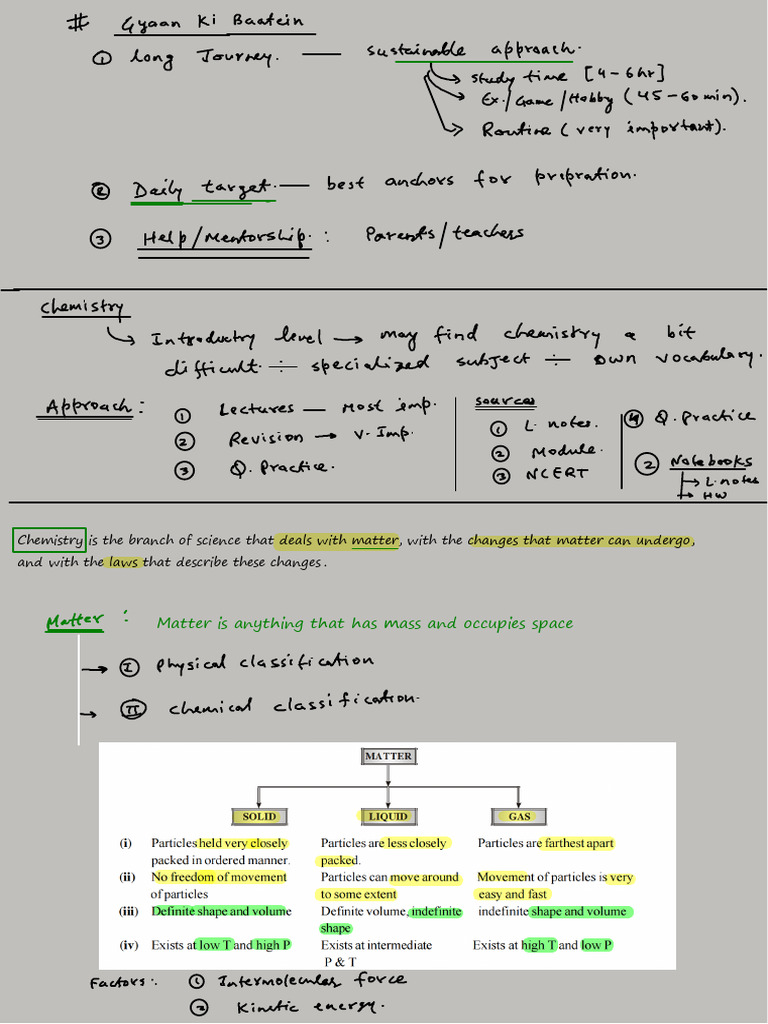 # Gyaan Ki Baatein
① Long Journey. — sustainable approach.
→ Study time [4-6hr]
→ Ex./Game/Hobby (45-60min).
→ Routine (very important).
② Daily target. — best anchors for prepration.
③ Help/Mentorship. : Parents/teachers
Chemistry
→ Introductry level → may find chemistry a bit
difficult. ÷ specialized subject ÷ own vocabulary.
Approach :
① Lectures — Most imp.
② Revision → V. Imp.
③ Q. Practice.
Sources
① L. notes.
② Module.
③ NCERT
④ Q. Practice
② Notebooks
→ L. notes
→ HW
Chemistry is the branch of science that deals with matter, with the changes that matter can undergo,
and with the laws that describe these changes.
Matter : Matter is anything that has mass and occupies space
→ Ⓘ Physical classification
→ Ⅱ Chemical classification.
MATTER
SOLID LIQUID GAS
(i) Particles held very closely Particles are less closely Particles are farthest apart
packed in ordered manner. packed.
(ii) No freedom of movement Particles can move around Movement of particles is very
of particles to some extent easy and fast
(iii) Definite shape and volume Definite volume, indefinite indefinite shape and volume
shape
(iv) Exists at low T and high P Exists at intermediate Exists at high T and low P
P & T
Factors:. ① Intermolecular force
② Kinetic energy.